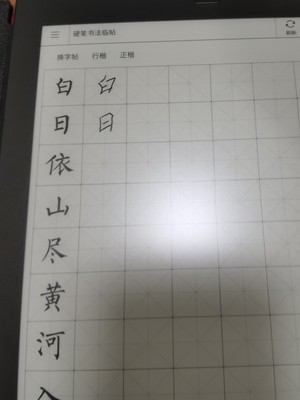 硬笔书法临帖
刷新
换字帖 行楷 正楷
白 白
日 日
依
山
尽
黄
河
入